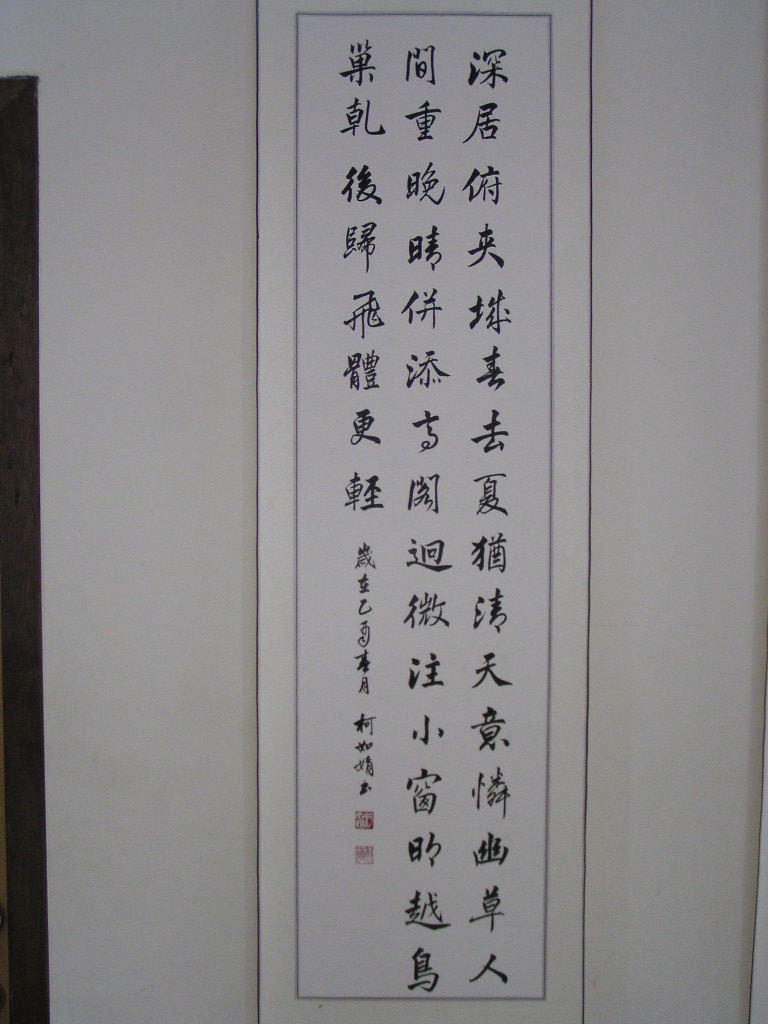 深居俯夾城春去夏猶清天意憐幽草人
間重晚晴併添高閣迥微注小窗明越鳥
巢乾後歸飛體更輕
歲在乙酉春月 柯如娟書